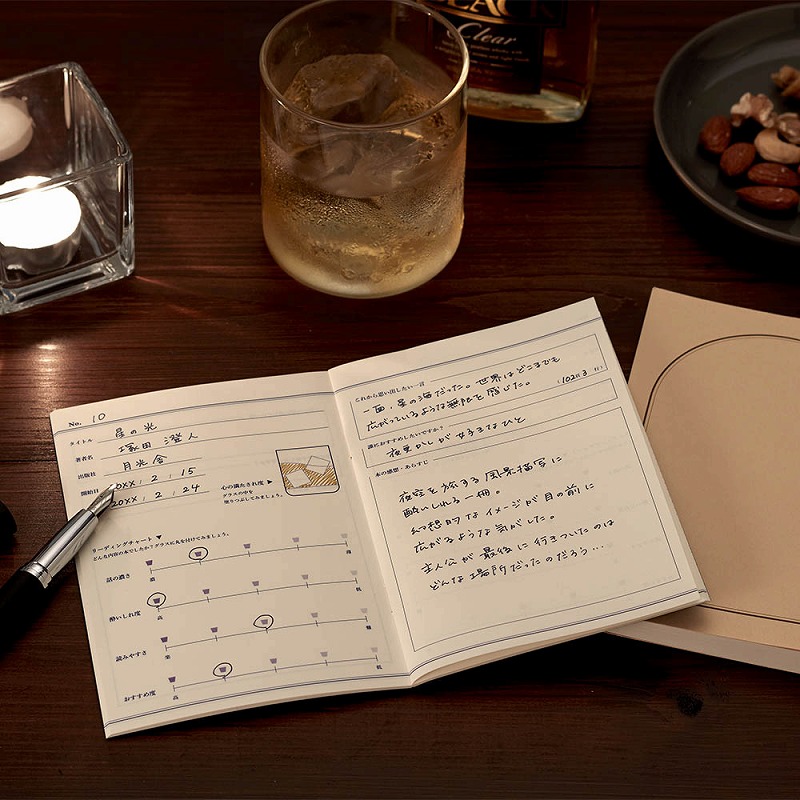 BLACK
Clear
No. 10
タイトル 星の光
著者名 塚田 澄人
出版社 月光舎
開始日 20XX / 2 / 15
20XX / 2 / 24
心の満たされ度▶
グラスの中を
塗りつぶしてみましょう。
リーディングチャート▼
どんな内容の本でしたか?グラスに丸を付けてみましょう。
話の濃さ
濃 薄
酔いしれ度
高 低
読みやすさ
楽 難
おすすめ度
高 低
これから思い出したい一言
一面、星の海だった。世界はどこまでも
広がっているような無限を感じた。
(102頁3行)
誰におすすめしたいですか?
夜更かしが好きなひと
本の感想・あらすじ
夜空を旅する風景描写に
酔いしれる一冊。
幻想的なイメージが目の前に
広がるような気がした。
主人公が最後に行きついたのは
どんな場所だったのだろう…